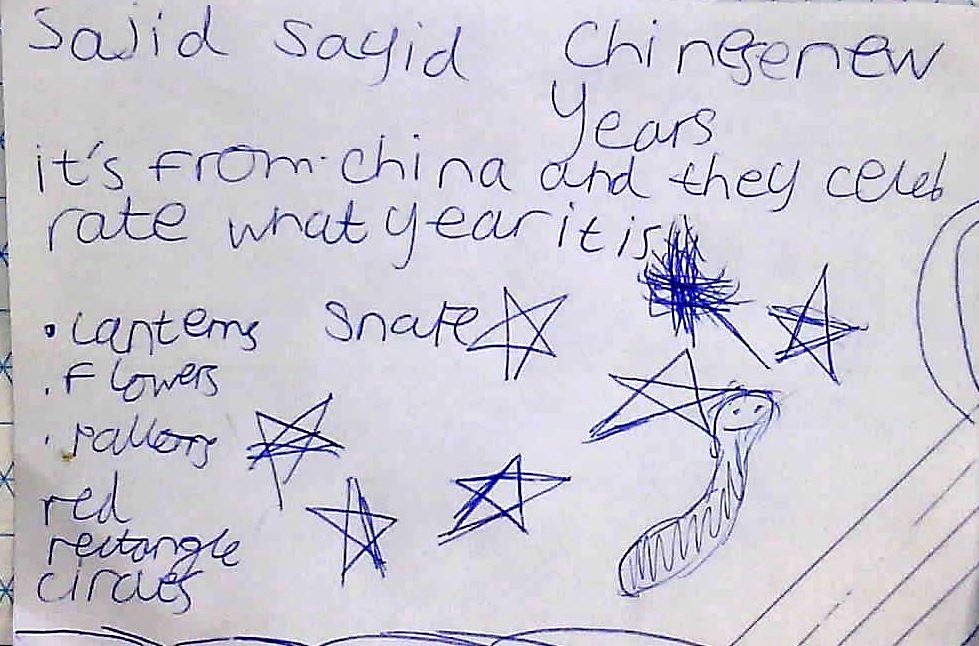 Sajid Sayid Chinesenew
Years
it's from china and they celeb
rate what year it is
• Lanterns Snake
. Flowers
.
red
rectangle
circles